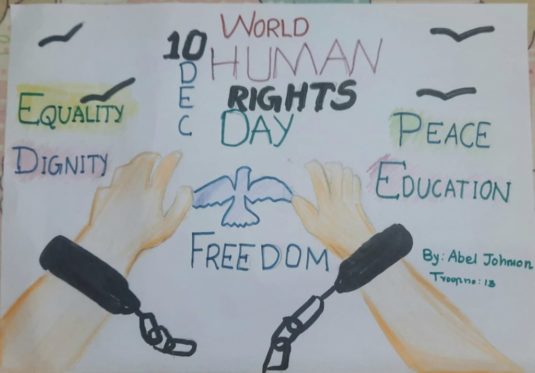 WORLD
10 HUMAN
DEC
RIGHTS
DAY
EQUALITY
DIGNITY
PEACE
EDUCATION
FREEDOM
By: Abel Johnson
Troop no: 13